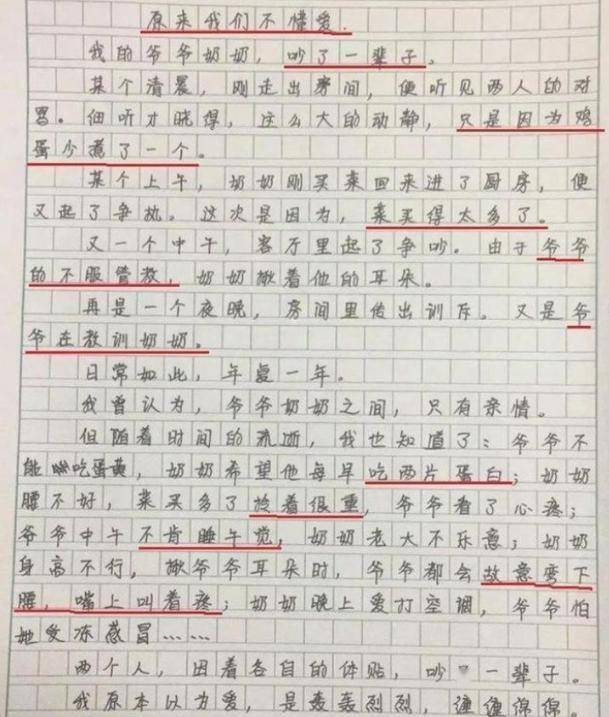 原来我们不懂爱.
我的爷爷奶奶，吵了一辈子。
某个清晨，刚走出房间，便听见两人的对
骂。细听才晓得，这么大的动静，只是因为鸡
蛋少煮了一个。
某个上午，奶奶刚买菜回来进了厨房，便
又起了争执。这次是因为，菜买得太多了。
又一个中午，客厅里起了争吵。由于爷爷
的不服管教，奶奶揪着他的耳朵。
再是一个夜晚，房间里传出训斥。又是爷
爷在教训奶奶。
日常如此，年复一年。
我曾认为，爷爷奶奶之间，只有亲情。
但随着时间的流逝，我也知道了：爷爷不
能吃蛋黄，奶奶希望他每早吃两片蛋白；奶奶
腰不好，菜买多了拎着很重，爷爷看了心疼；
爷爷中午不肯睡午觉，奶奶老大不乐意；奶奶
身高不行，揪爷爷耳朵时，爷爷都会故意弯下
腰，嘴上叫着疼；奶奶晚上爱打空调，爷爷怕
她受冻感冒……
两个人，因着各自的体贴，吵一辈子。
我原本以为爱，是轰轰烈烈，缠缠绵绵。